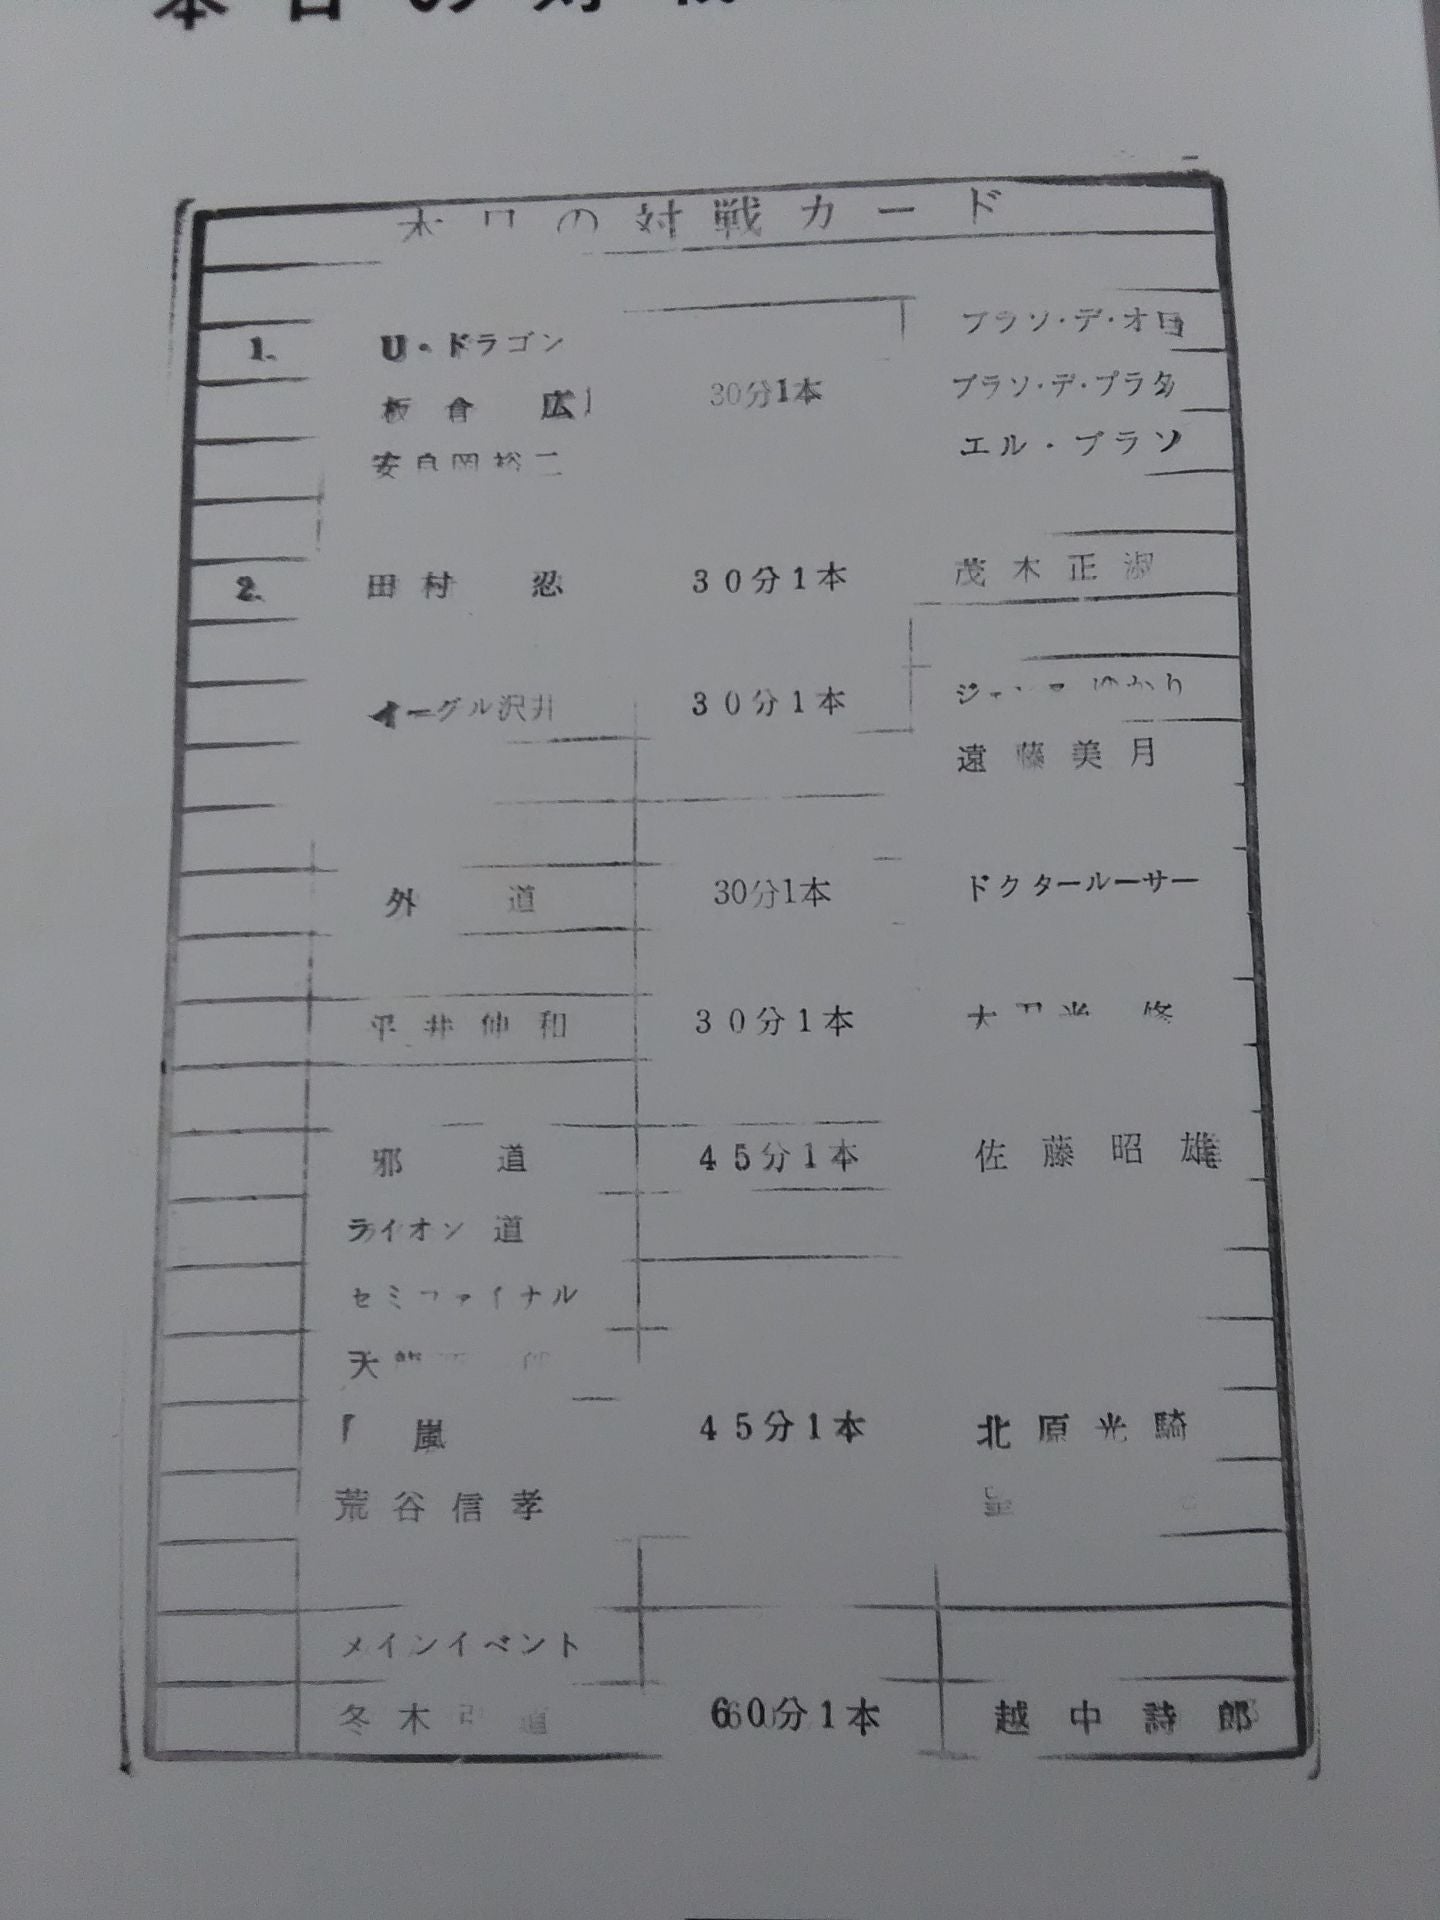 本日の対戦
本日の対戦カード
ブラソ・デ・オロ
1. U・ドラゴン
ブラソ・デ・プラタ
板倉 広 30分1本
エル・ブラソ
安良岡裕二
2. 田村 忍 30分1本 茂木正淑
イーグル沢井 30分1本 ゆかり
遠藤美月
外道 30分1本 ドクタールーサー
平井伸和 30分1本 大刀光 修
邪道 45分1本 佐藤昭雄
ライオン道
セミファイナル
天龍
嵐 45分1本 北原光騎
荒谷信孝
メインイベント
冬木弘道 60分1本 越中詩郎